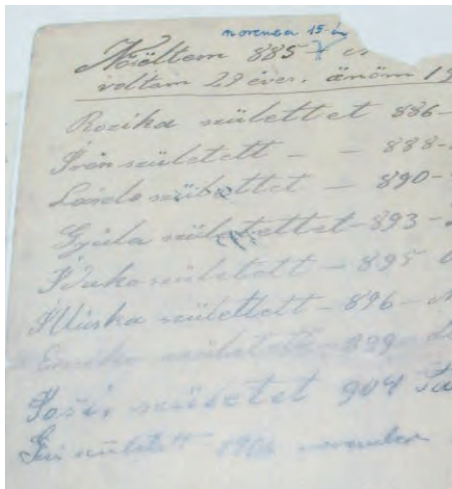 november 15-én
Nősültem 885
voltam 29 éves. änöm 19
Rozika születtet 886-
Irén született - - 888-
László születtet - 890-
Gyula születettet - 893 -
született - 895
Iluska születtett - 896 -
született - 899 -
születet 904
született 1906 november